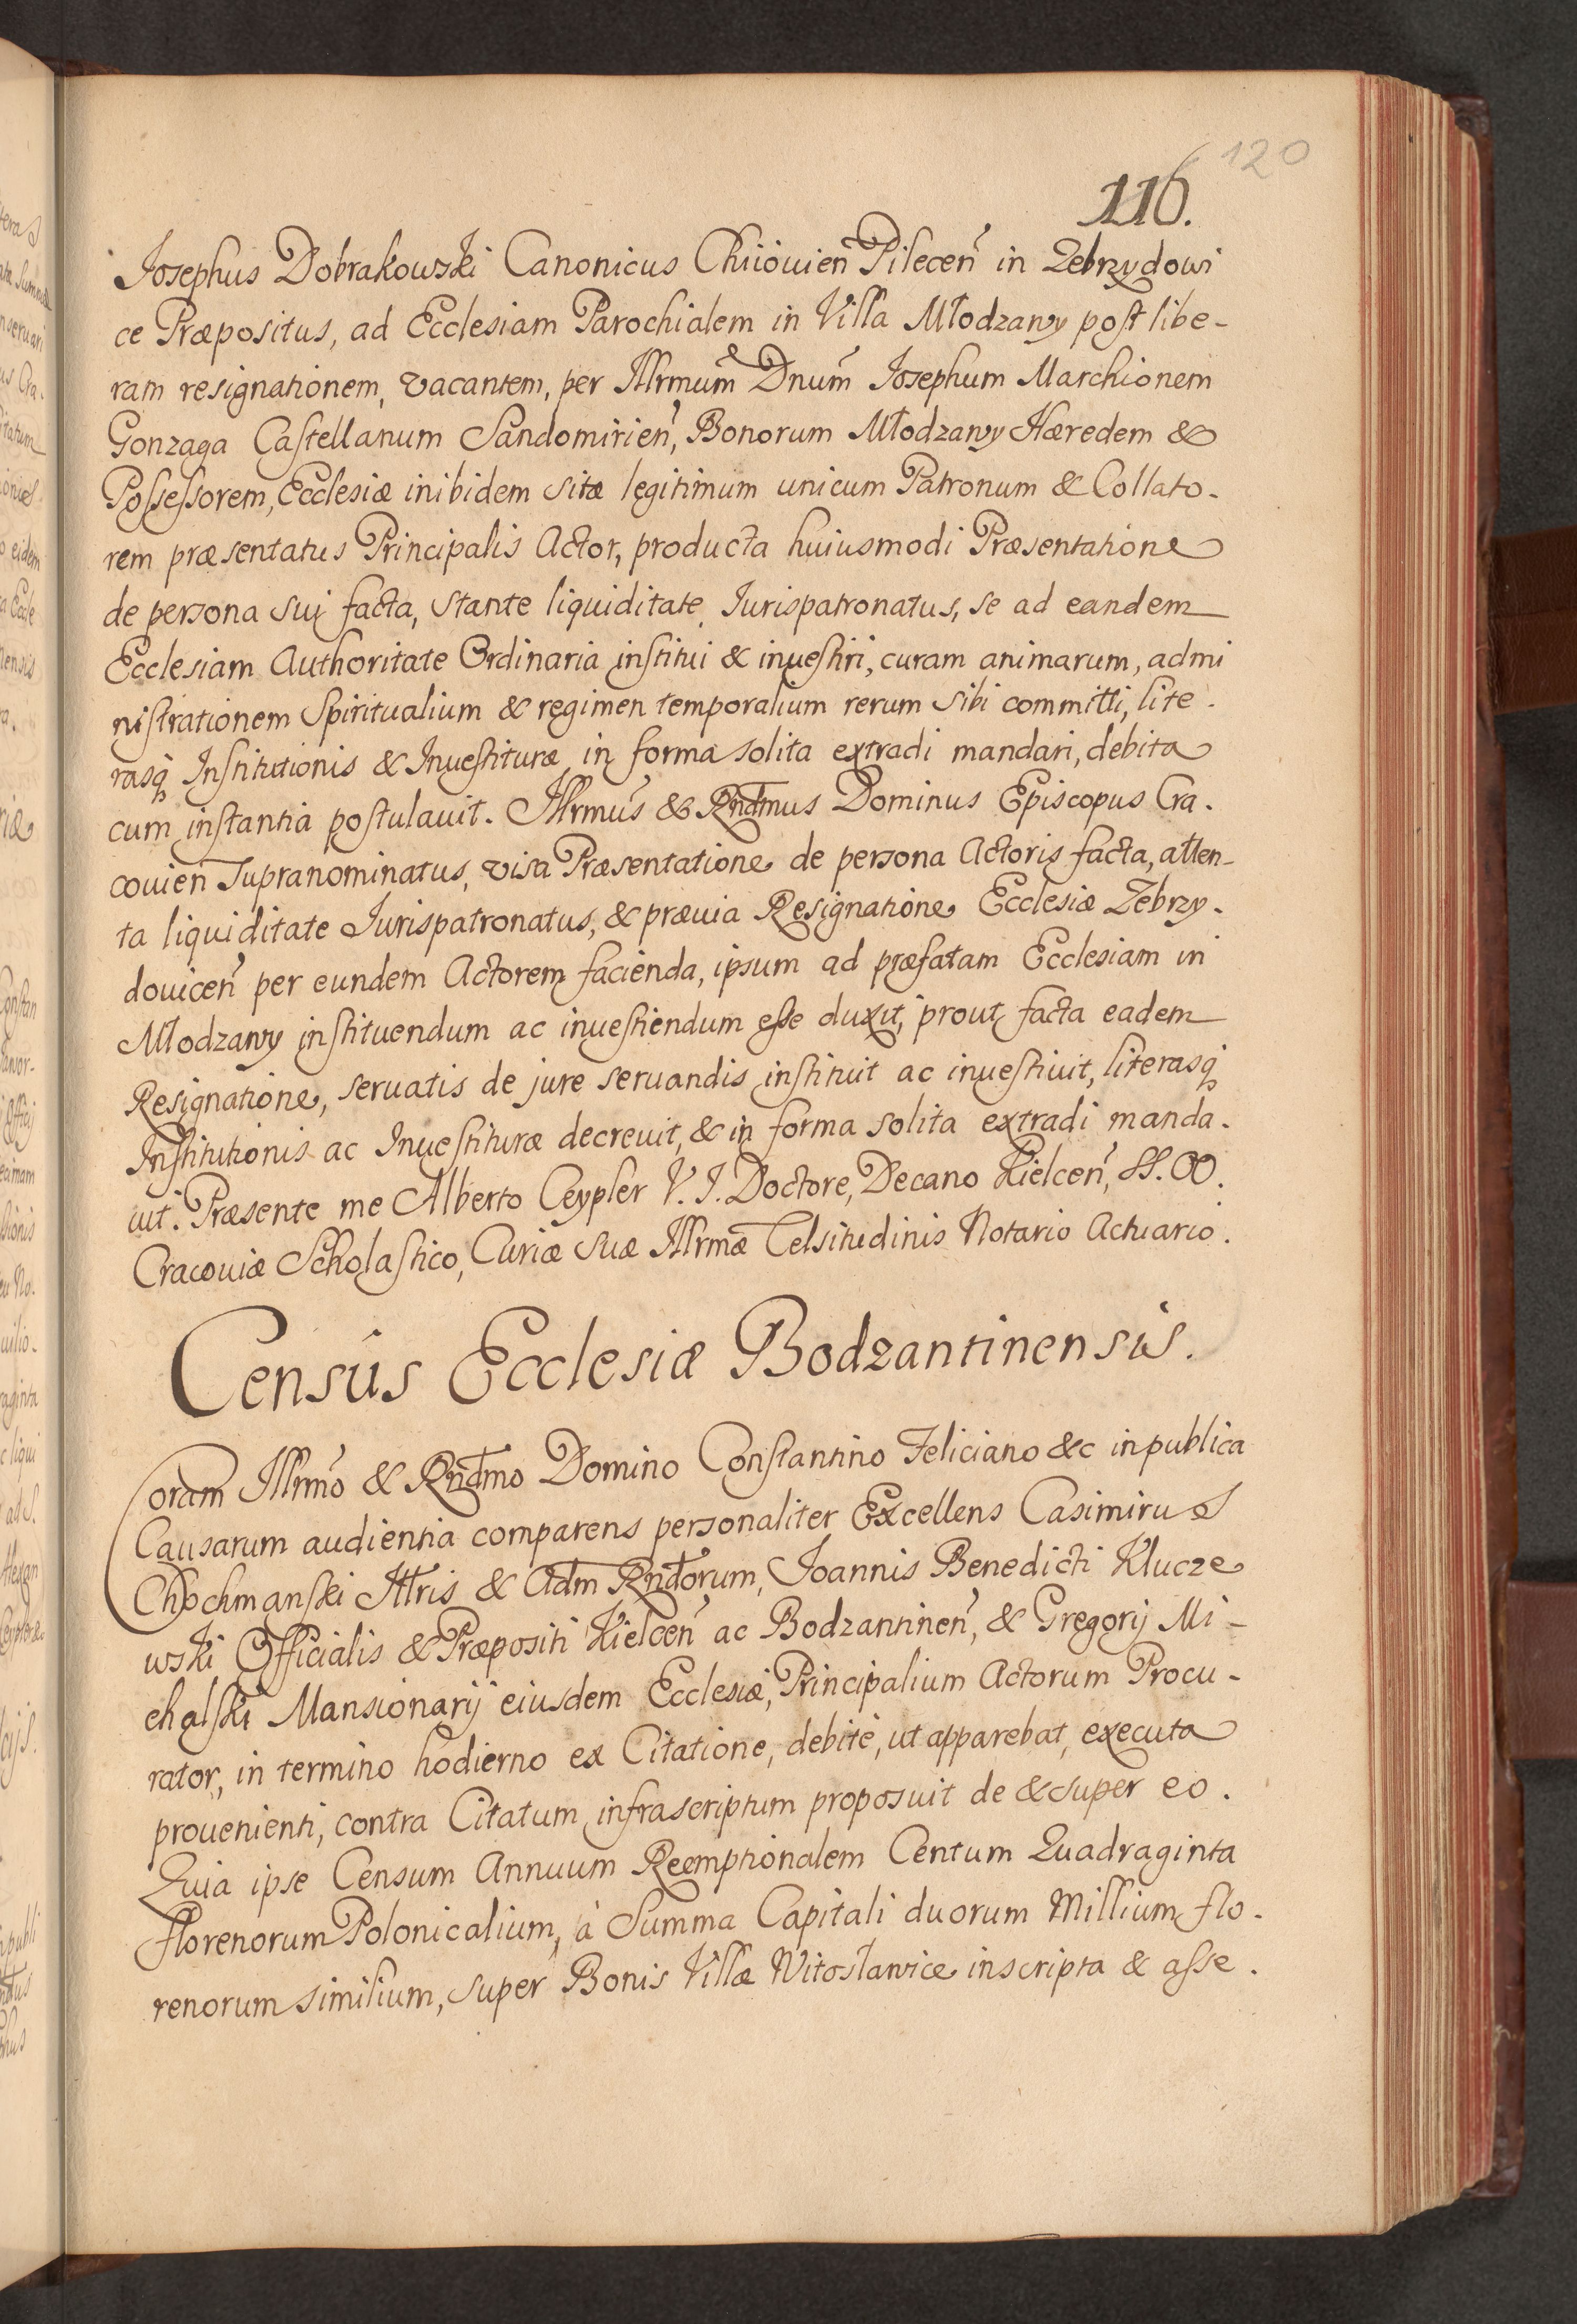 120
116.
Josephus Dobrakowski Canonicus Chiiouien̄ Pilecen̄ in Zebrzydowi
ce Præpositus, ad Ecclesiam Parochialem in Villa Młodzawy post libe-
ram resignationem, vacantem, per Illrmum̄ Dnum̄ Josephum Marchionem
Gonzaga Castellanum Sandomirien̄, Bonorum Młodzawy Hæredem &
Possessorem, Ecclesiæ inibidem sitæ legitimum unicum Patronum & Collato-
rem præsentatus Principalis Actor, producta huiusmodi Præsentatione
de persona sui facta, stante liquiditate Jurispatronatus, se ad eandem
Ecclesiam Authoritate Ordinaria institui & inuestiri, curam animarum, admi
nistrationem Spiritualium & regimen temporalium rerum sibi committi, lite-
rasq̨ Institutionis & Inuestituræ in forma solita extradi mandari, debita
cum instantia postulauit. Illrmūs & Rndmus Dominus Episcopus Cra-
couien̄ Supranominatus, visa Præsentatione de persona Actoris facta, atten-
ta liquiditate Jurispatronatus, & præuia Resignatione Ecclesiæ Zebrzy-
douicen̄ per eundem Actorem facienda, ipsum ad præfatam Ecclesiam in
Młodzawy instituendum ac inuestiendum esse duxit, prout facta eadem
Resignatione, seruatis de jure seruandis instituit ac inuestiuit, literasq̨
Institutionis ac Inuestituræ decreuit, & in forma solita extradi manda-
uit. Præsente me Alberto Ceypler V. J. Doctore, Decano Kielcen̄, SS. OO.
Cracouiæ Scholastico, Curiæ suæ Illrmæ Celsitudinis Notario Actuario.
Census Ecclesiæ Bodzantinensis.
Coram Illrmo & Rndmo Domino Constantino Feliciano &c in publica
Causarum audientia comparens personaliter Excellens Casimirus
Chochmanski Illris & Adm Rndorum, Joannis Benedicti Klucze
wski Officialis & Præpositi Kielcen̄ ac Bodzantinen̄, & Gregorij Mi-
chalski Mansionarij eiusdem Ecclesiæ, Principalium Actorum Procu-
rator, in termino hodierno ex Citatione, debitè, ut apparebat, executa
prouenienti, contra Citatum infrascriptum proposuit de & super eo.
Quia ipse Censum Annuum Reemptionalem Centum Quadraginta
florenorum Polonicalium, à Summa Capitali duorum Millium flo-
renorum similium, super Bonis Villæ Witosławice inscripta & asse-